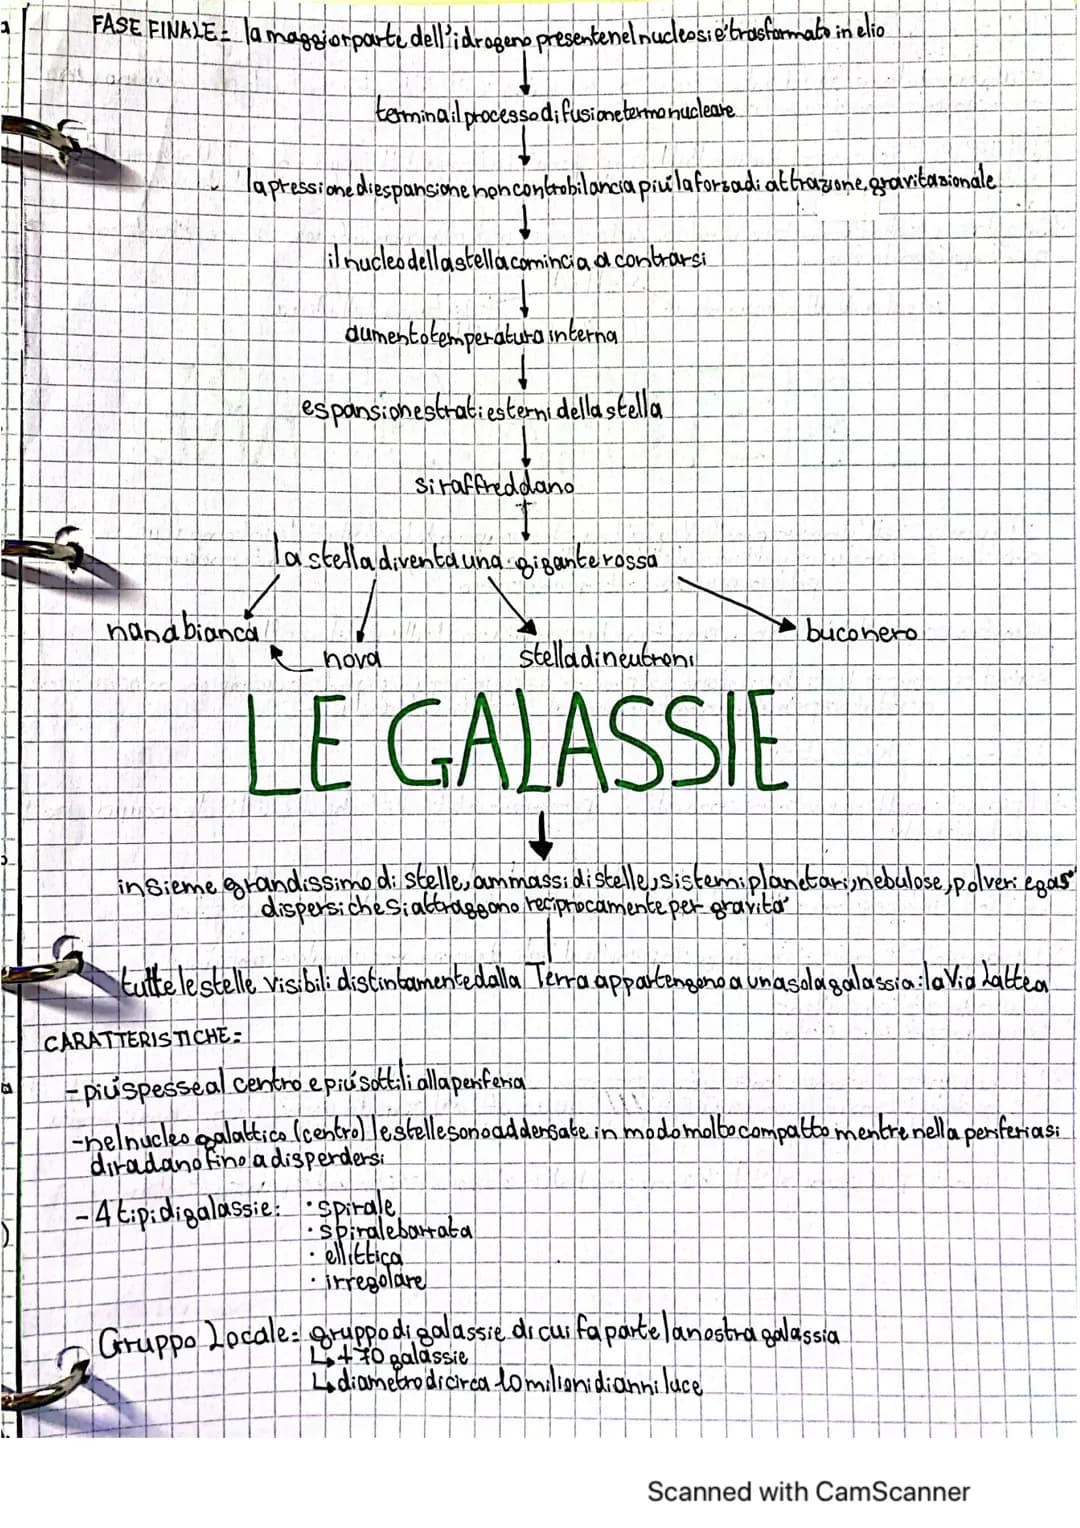 FASE FINALE= la maggior parte dell'idrogeno presente nel nucleo si e' trasformato in elio
termina il processo di fusione termonucleare
la pressione di espansione non controbilancia piú la forza di attrazione gravitazionale
il nucleo della stella comincia a contrarsi
aumento temperatura interna
espansione strati esterni della stella
si raffreddano
la stella diventa una gigante rossa
nana bianca
buco nero
nova
stella di neutroni
LE GALASSIE
insieme grandissimo di stelle, ammassi di stelle, sistemi planetari, nebulose, polveri e gas
dispersi che si attraggono reciprocamente per gravita'
tutte le stelle visibili distintamente dalla Terra appartengono a una sola galassia: la Via Lattea
CARATTERISTICHE=
- piú spesse al centro e piú sottili alla periferia
- nel nucleo galattico (centro) le stelle sono addensate in modo molto compatto mentre nella periferia si
diradano fino a disperdersi
- 4 tipi di galassie: • spirale
• spirale barrata
• ellittica
• irregolare
Gruppo Locale= gruppo di galassie di cui fa parte la nostra galassia
↳ + 70 galassie
↳ diametro di circa 10 milioni di anni luce
Scanned with CamScanner